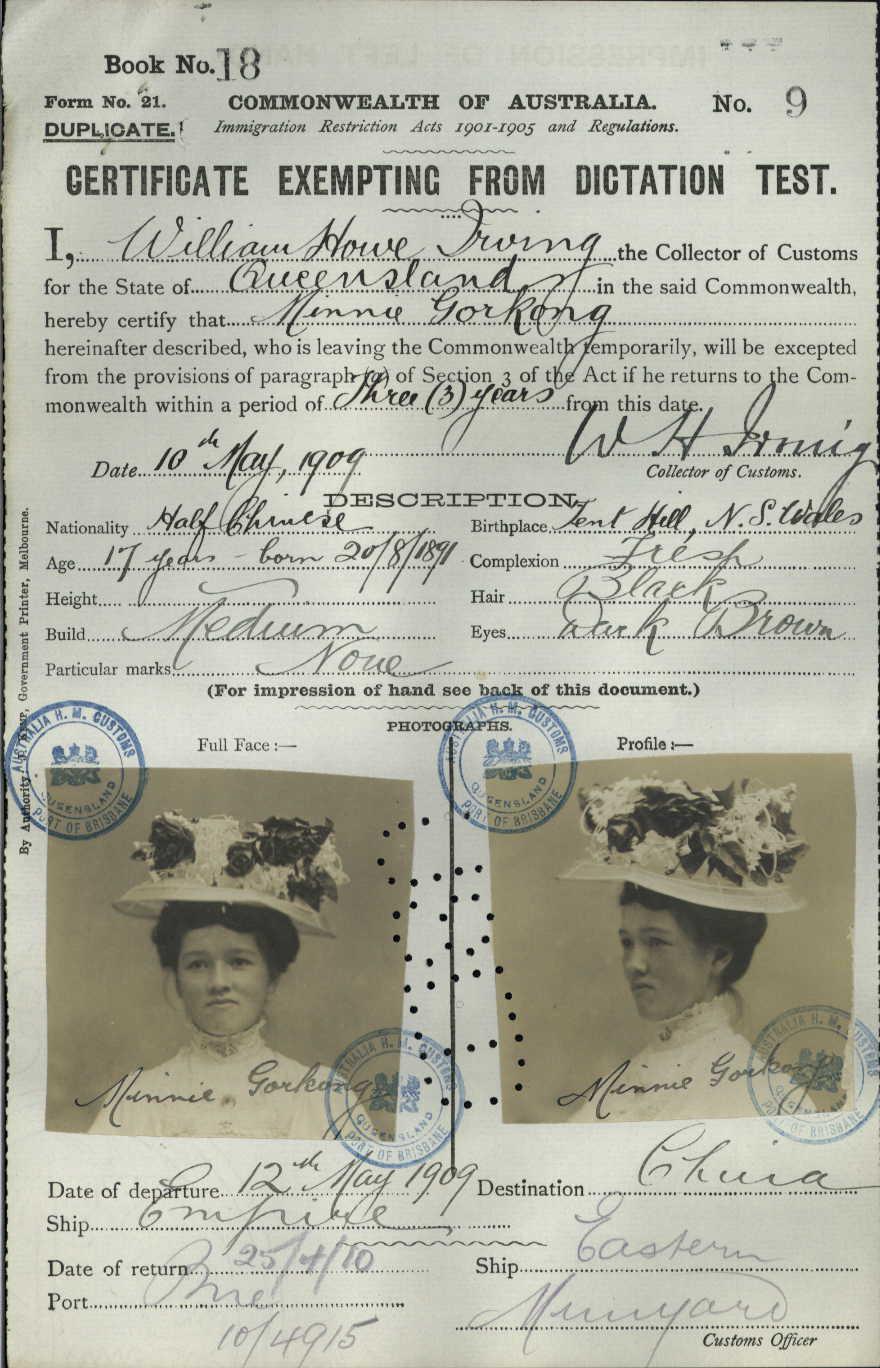 Book No. 18
Form No. 21. COMMONWEALTH OF AUSTRALIA. No. 9
DUPLICATE. Immigration Restriction Acts 1901-1905 and Regulations.
CERTIFICATE EXEMPTING FROM DICTATION TEST.
I, William Howe Irving the Collector of Customs
for the State of Queensland in the said Commonwealth,
hereby certify that Minnie Gorkong
hereinafter described, who is leaving the Commonwealth temporarily, will be excepted
from the provisions of paragraph (a) of Section 3 of the Act if he returns to the Com-
monwealth within a period of Three (3) years from this date.
W H Irving
Date 10th May, 1909 Collector of Customs.
DESCRIPTION.
Nationality Half Chinese Birthplace Tent Hill, N. S. Wales
Age 17 years - born 20/8/1891 Complexion Fresh
Height Hair Black
Build Medium Eyes Dark Brown
Particular marks None
(For impression of hand see back of this document.)
PHOTOGRAPHS.
Full Face :— Profile :—
AUSTRALIA H. M. CUSTOMS QUEENSLAND PORT OF BRISBANE
AUSTRALIA H. M. CUSTOMS QUEENSLAND PORT OF BRISBANE
Minnie Gorkong Minnie Gorkong
AUSTRALIA H. M. CUSTOMS QUEENSLAND PORT OF BRISBANE
AUSTRALIA H. M. CUSTOMS QUEENSLAND PORT OF BRISBANE
Date of departure 12th May 1909 Destination China
Ship Empire
Date of return 25/4/10 Ship Eastern
Port Bne
10/4915 Munyard
Customs Officer
By Authority: J. KEMP, Government Printer, Melbourne.